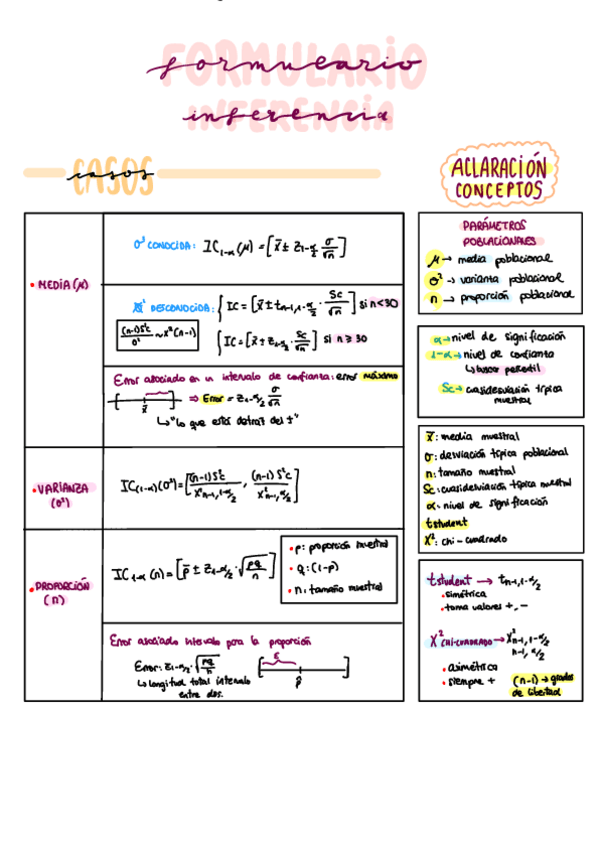 FORMULARIO
formulario
INFERENCIA
inferencia
CASOS
casos
• MEDIA (μ)
σ² CONOCIDA: IC₁₋α(μ) = [x̄ ± z₁₋α/₂ σ/√n]
DESCONOCIDA: { IC = [x̄ ± tₙ₋₁,₁₋α/₂ · Sc/√n] si n<30
(n-1)S²c/σ² ~ X²(n-1)
{ IC = [x̄ ± z₁₋α/₂ · Sc/√n] si n ≥ 30
Error asociado en un intervalo de confianza: error máximo
x̄
⇒ Error = z₁₋α/₂ σ/√n
↳ "lo que está detrás del ±"
• VARIANZA
(σ²)
IC(₁₋α)(σ²) = [(n-1)S²c/X²ₙ₋₁,₁₋α/₂ , (n-1)S²c/X²ₙ₋₁,α/₂]
• PROPORCIÓN
(π)
IC₁₋α(π) = [p̄ ± z₁₋α/₂ · √pq/n]
• p: proporción muestral
• q: (1-p)
• n: tamaño muestral
Error asociado intervalo para la proporción
Error: z₁₋α/₂ · √pq/n
↳ longitud total intervalo
entre dos.
ε
p̂
ACLARACIÓN
CONCEPTOS
PARÁMETROS
POBLACIONALES
μ → media poblacional
σ² → varianta poblacional
π → proporción poblacional
α → nivel de significación
1-α → nivel de confianta
↳ buscar percentil
Sc → cuasidesviación típica
muestral
x̄: media muestral
σ: desviación típica poblacional
n: tamaño muestral
Sc: cuasidesviación típica muestral
α: nivel de significación
tstudent
X²: chi-cuadrado
tstudent → tₙ₋₁,₁₋α/₂
• simétrica
• toma valores +, -
X² CHI-CUADRADO → X²ₙ₋₁,₁₋α/₂
n-1, α/₂
• asimétrica
• siempre +
(n-1) → grados
de libertad